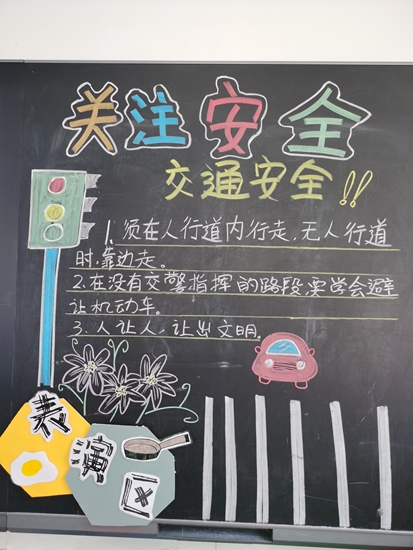 关注安全
交通安全!!
1. 须在人行道内行走,无人行道
时,靠边走。
2.在没有交警指挥的路段,要学会避
让机动车。
3.人让人,让出文明。